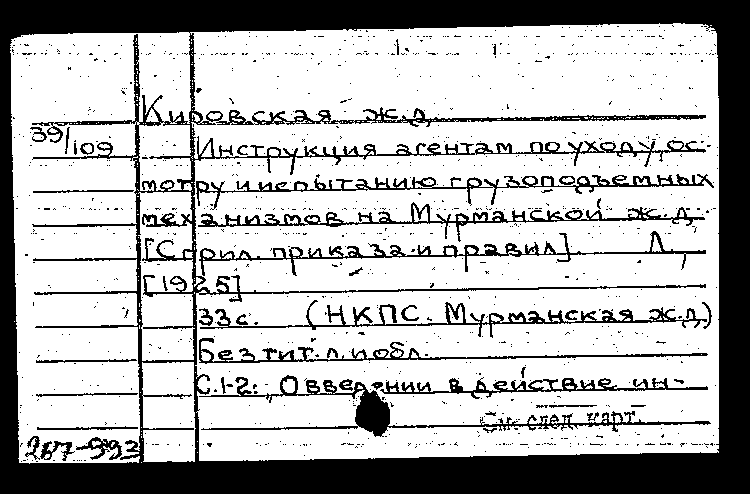 Кировская ж.д.
39/109
Инструкция агентам по уходу, ос-
мотру и испытанию грузоподъемных
механизмов на Мурманской ж.д.
[С прил. приказа и правил]. Л.,
[1925].
33 с. (НКПС. Мурманская ж.д.)
Без тит. л. и обл.
С.1-2: О введении в действие ин-
См. след. карт.
287-993